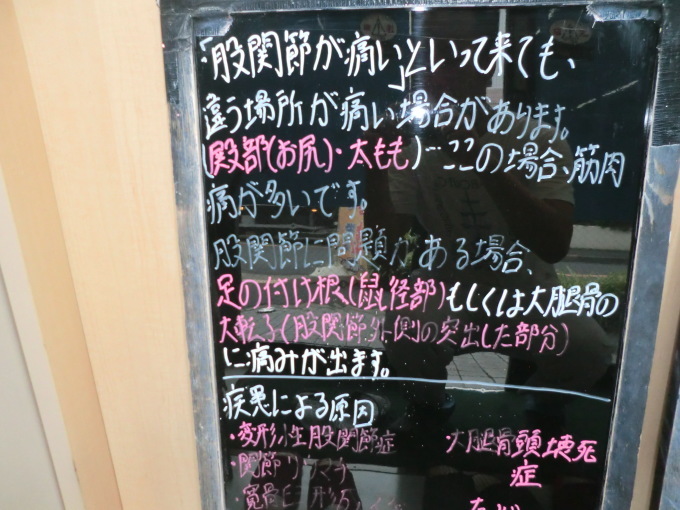 「股関節が痛い」といって来ても、
違う場所が痛い場合があります。
(殿部(お尻)・太もも)…ここの場合、筋肉
痛が多いです。
股関節に問題がある場合、
足の付け根、(鼠径部)もしくは大腿骨の
大転子(股関節外側の突出した部分)
に痛みが出ます。
疾患による原因
・変形性股関節症 ・大腿骨頭壊死
・関節リウマチ 症
など